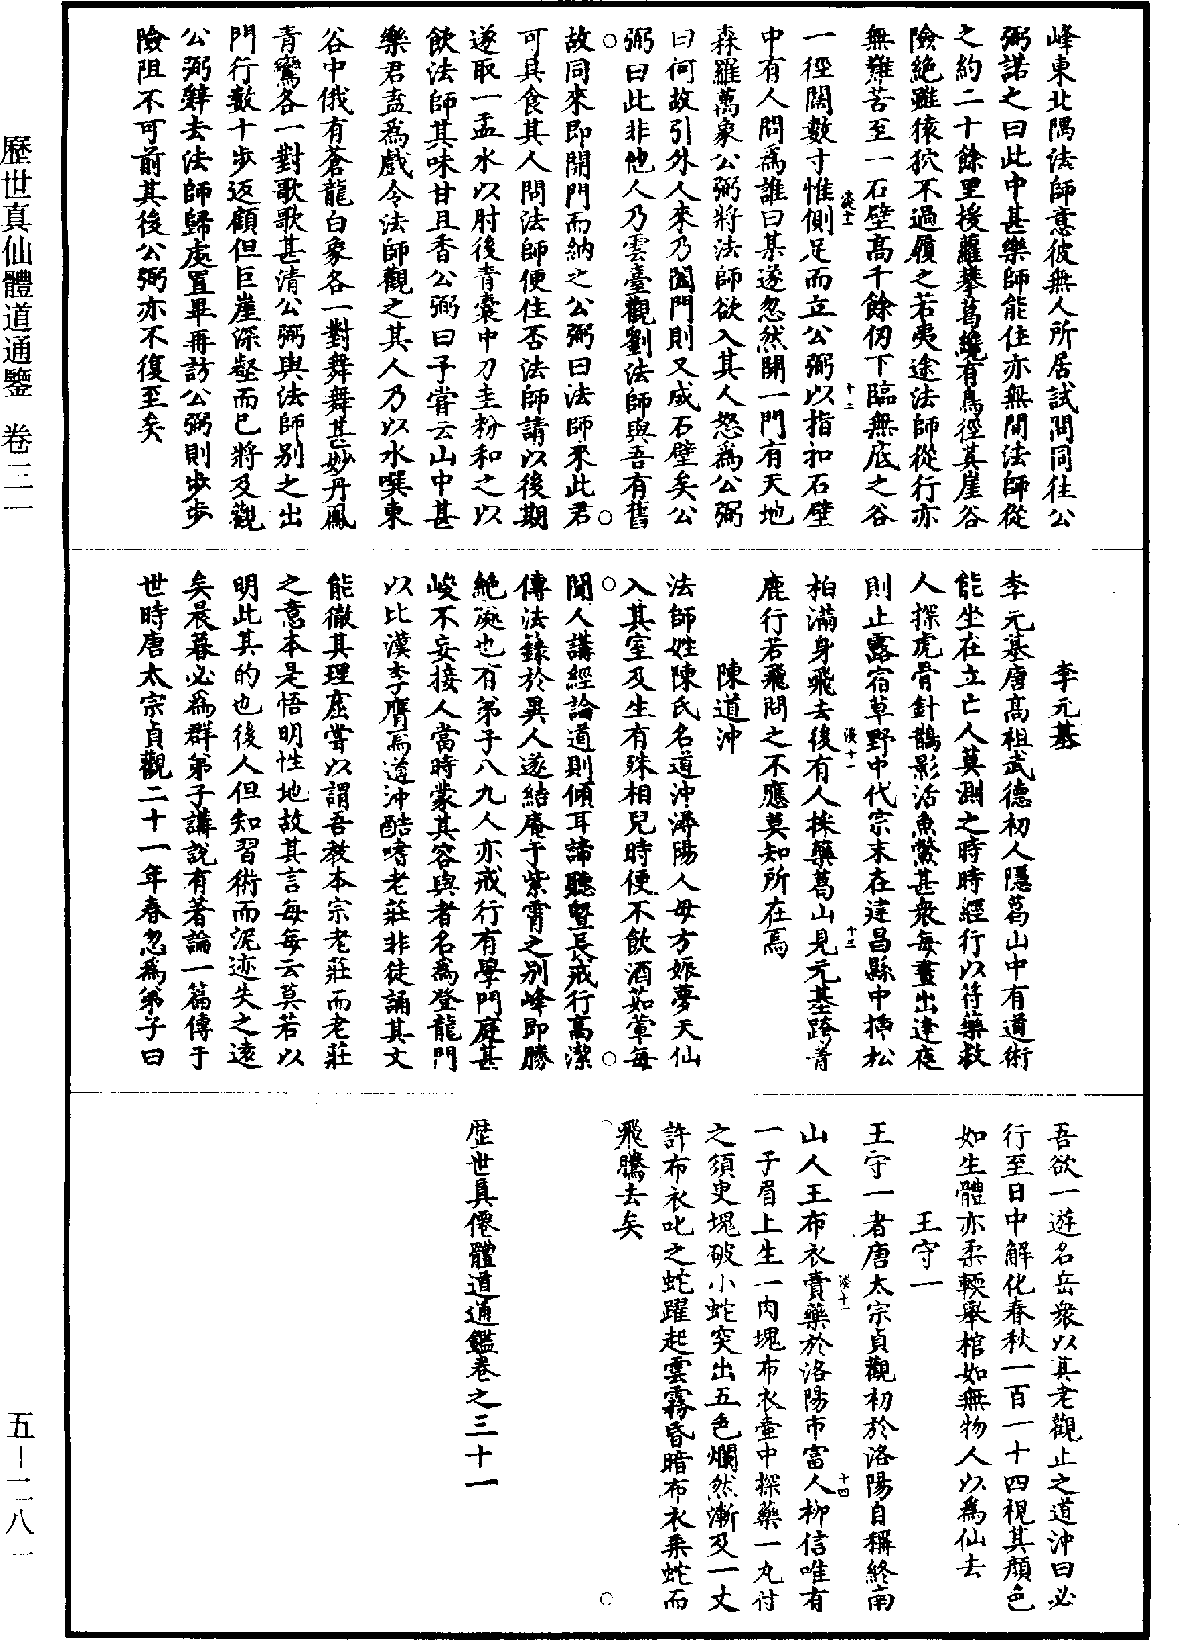 峰東北隅法師意彼無人所居試問同往公
弼諾之曰此中甚樂師能住亦無間法師從
之約二十餘里援蘿攀葛纔有鳥徑其崖谷
險絕雖猿狖不過履之若夷途法師從行亦
無難苦至一石壁高千餘仞下臨無底之谷
一徑闊數寸惟側足而立公弼以指扣石壁
中有人問為誰曰某遂忽然開一門有天地
森羅萬象公弼將法師欲入其人怒為公弼
曰何故引外人來乃闔門則又成石壁矣公
弼曰此非他人乃雲臺觀劉法師與吾有舊
故同來即開門而納之公弼曰法師來此君
可具食其人問法師便住否法師請以後期
遂取一盂水以肘後青囊中刀圭粉和之以
飲法師其味甘且香公弼曰子嘗云山中甚
樂君盍為戲令法師觀之其人乃以水噀東
谷中俄有蒼龍白象各一對舞舞甚妙丹鳳
青鸞各一對歌歌甚清公弼與法師別之出
門行數十步返顧但巨崖深壑而已將及觀
公弼辭去法師歸處置畢再訪公弼則步步
險阻不可前其後公弼亦不復至矣
李元基
李元基唐高祖武德初人隱葛山中有道術
能坐在立亡人莫測之時時經行以符藥救
人探虎骨針鵲影活魚鱉甚衆每晝出達夜
則止露宿草野中代宗末在建昌縣中插松
柏滿身飛去後有人採藥葛山見元基跨青
鹿行若飛問之不應莫知所在焉
陳道沖
法師姓陳氏名道沖潯陽人母方娠夢天仙
入其室及生有殊相兒時便不飲酒茹葷每
聞人講經論道則傾耳諦聽暨長戒行高潔
傳法籙於異人遂結庵于紫霄之別峰即勝
絕處也有弟子八九人亦戒行有學門庭甚
峻不妄接人當時蒙其容與者名為登龍門
以比漢李膺焉道沖酷嗜老莊非徒誦其文
能徹其理座嘗以謂吾教本宗老莊而老莊
之意本是悟明性地故其言每每云莫若以
明此其的也後人但知習術而泥迹失之遠
矣晨暮必為群弟子講說有著論一篇傳于
世時唐太宗貞觀二十一年春忽為弟子曰
吾欲一遊名岳衆以其老觀止之道沖曰必
行至日中解化春秋一百一十四視其顏色
如生體亦柔輭舉棺如無物人以為仙去
王守一
王守一者唐太宗貞觀初於洛陽自稱終南
山人王布衣賣藥於洛陽市富人柳信唯有
一子眉上生一肉塊布衣壺中探藥一丸付
之須臾塊破小蛇突出五色爛然漸及一丈
許布衣叱之蛇躍起雲霧昏暗布衣乘蛇而
飛騰去矣
歷世真僊體道通鑑卷之三十一
歷世真仙體道通鑒 卷三一
五－二八一